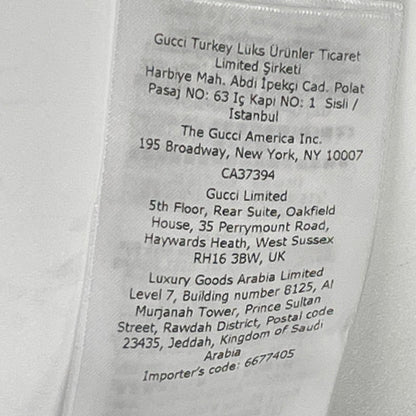 Gucci Turkey Lüks Ürünler Ticaret
Limited Şirketi
Harbiye Mah. Abdi İpekçi Cad. Polat
Pasaj NO: 63 İç Kapı NO: 1 Sisli /
Istanbul
The Gucci America Inc.
195 Broadway, New York, NY 10007
CA37394
Gucci Limited
5th Floor, Rear Suite, Oakfield
House, 35 Perrymount Road,
Haywards Heath, West Sussex
RH16 3BW, UK
Luxury Goods Arabia Limited
Level 7, Building number 8125, Al
Murjanah Tower, Prince Sultan
Street, Rawdah District, Postal code
23435, Jeddah, Kingdom of Saudi
Arabia
Importer's code: 6677405